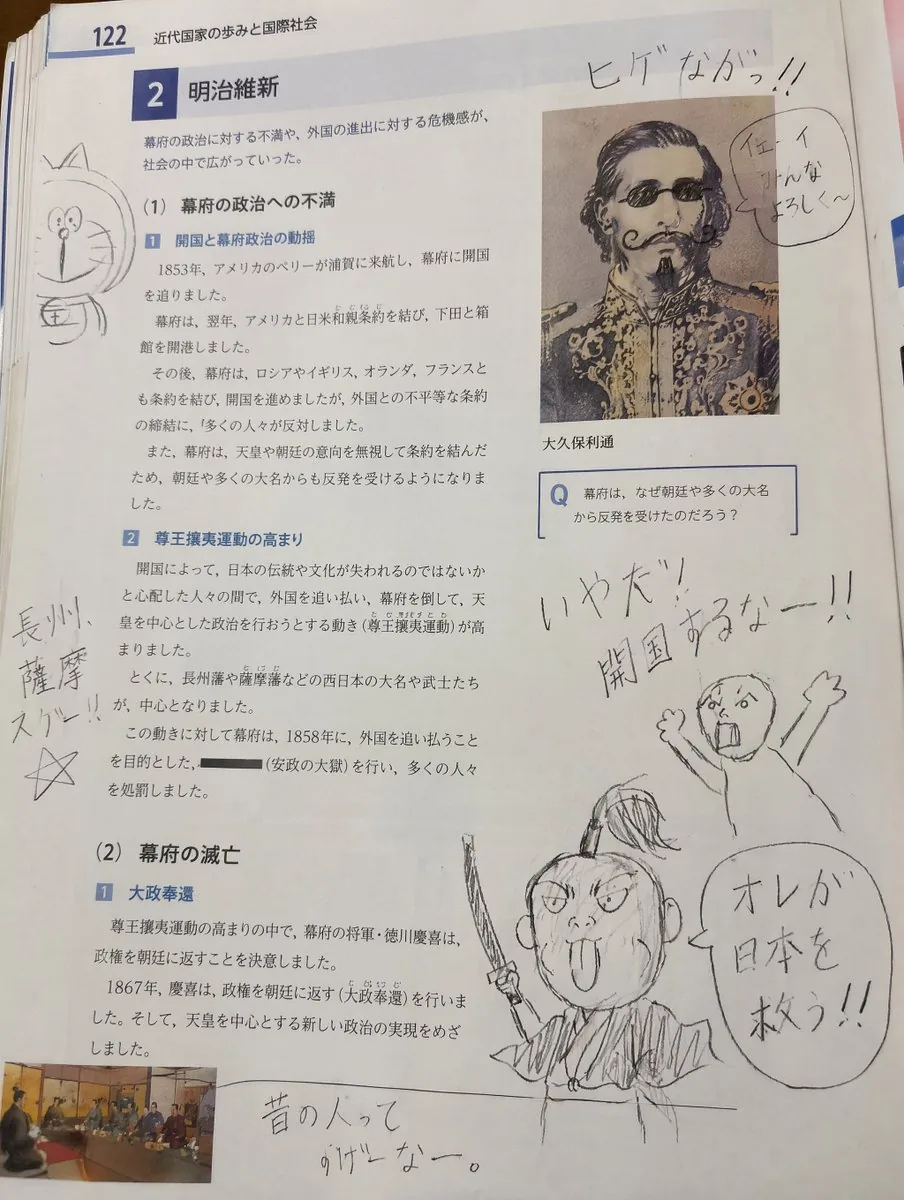 122
近代国家の歩みと国際社会
2 明治維新
幕府の政治に対する不満や、外国の進出に対する危機感が、
社会の中で広がっていった。
(1) 幕府の政治への不満
1 開国と幕府政治の動揺
1853年，アメリカのペリーが浦賀に来航し，幕府に開国
を迫りました。
幕府は，翌年，アメリカと日米和親条約を結び，下田と箱
館を開港しました。
その後，幕府は，ロシアやイギリス，オランダ，フランスと
も条約を結び，開国を進めましたが，外国との不平等な条約
の締結に，「多くの人々が反対しました。
また，幕府は，天皇や朝廷の意向を無視して条約を結んだ
ため，朝廷や多くの大名からも反発を受けるようになりま
した。
2 尊王攘夷運動の高まり
開国によって，日本の伝統や文化が失われるのではないか
と心配した人々の間で，外国を追い払い，幕府を倒して，天
皇を中心とした政治を行おうとする動き（尊王攘夷運動）が高
まりました。
とくに，長州藩や薩摩藩などの西日本の大名や武士たち
が，中心となりました。
この動きに対して幕府は，1858年に，外国を追い払うこと
を目的とした，（安政の大獄）を行い，多くの人々
を処罰しました。
(2) 幕府の滅亡
1 大政奉還
尊王攘夷運動の高まりの中で，幕府の将軍・徳川慶喜は，
政権を朝廷に返すことを決意しました。
1867年，慶喜は，政権を朝廷に返す（大政奉還）を行いま
した。そして，天皇を中心とする新しい政治の実現をめざ
しました。
ヒゲながっ!!
イェーイ
みんな
よろしく〜
大久保利通
Q 幕府は，なぜ朝廷や多くの大名
から反発を受けたのだろう？
いやだ!!
開国するなー!!
長州、
薩摩
スゲー!!
オレが
日本を
救う!!
昔の人って
すげーなー。